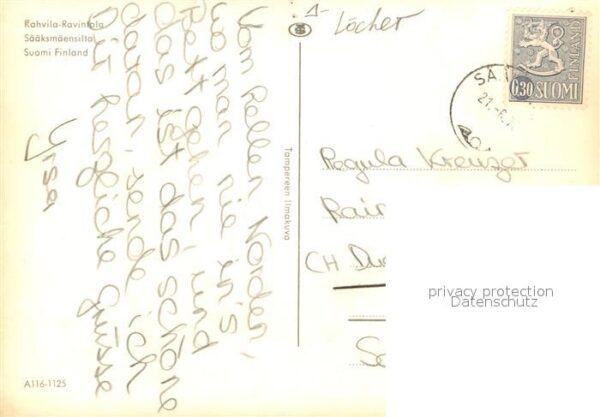 Rahvila-Ravintola
Sääksmäensilta
Suomi Finland
Vom hellen Norden,
wo man nie in's
Bett gehen und
das ist das schöne
daran, sende ich
Dir herzliche Grüsse
Yrsa
A116-1125
Tampereen Ilmakuva
Löcher
0,30 SUOMI
FINLAND
SA
21.-6.
Regula Kreuzer
Rair
CH
privacy protection
Datenschutz